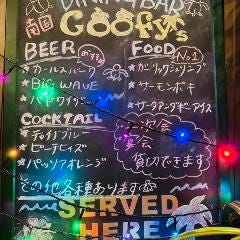 DINING BAR
南国 Goofy's
BEER おすすめ
★カールスバーグ
★BIG WAVE
★ハイビワイザー
COCKTAIL
★チャイナブルー
★ピーチビーズ
★パッソアオレンジ
FOOD No.1
★ガーリックシュリンプ
★サーモンポキ
★サーターアンダギーアイス
二次会
宴会
貸切できます
その他各種あります
SERVED
HERE